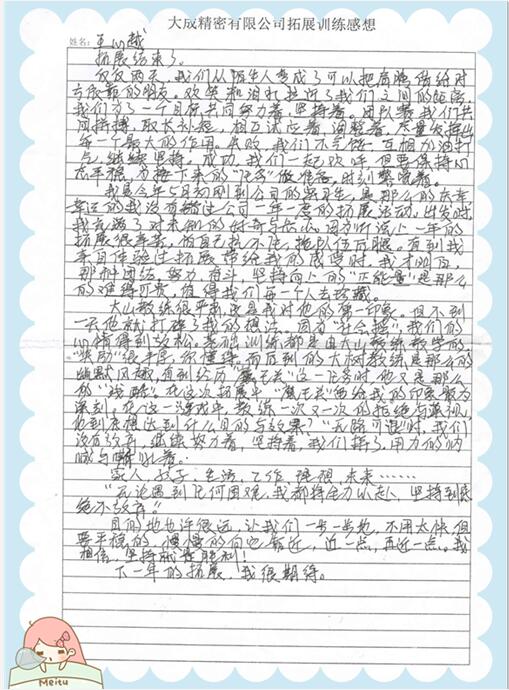 大成精密有限公司拓展训练感想
姓名: 王 越
拓展结束了。
仅仅两天，我们从陌生人变成了可以把肩膀借给对
方依靠的朋友。欢笑和泪水拉近了我们之间的距离，
我们为了一个目标共同努力着，坚持着。团队赛我们共
同拼搏，取长补短，相互试应着，调整着，尽量发挥出
每一个最大的作用。失败，我们不气馁，互相加油打
气，继续坚持。成功，我们一起欢呼，但要保持心
态平稳，为接下来的“任务”做准备，时刻警惕着。
我是今年5月初刚到公司的实习生，是那么的庆幸
幸运的我没有错过公司一年一度的拓展活动。出发时，
我充满了对未知的好奇与担心。因为听说上一年的
拓展很辛苦，怕自己扛不住，拖队伍后腿。直到我
亲自体验过拓展带给我的感觉时，我才明白，
那种团结、努力、奋斗，坚持向上的“正能量”是那么
的难得可贵，值得我们每一个人去珍藏。
大山教练很严肃，这是我对他的第一印象。但不到
一天他就打碎了我的想法。因为“社会摇”，我们的
心情得到放松。基础训练都是由大山教练教学的，
“奖励”很丰富，你懂得。而后到的大树教练是那么的
幽默风趣，直到经历“ 无天”这一任务时，他又是那么
的“残酷”。在这次拓展中“ 无天”留给我的印象最为
深刻。在这一游戏中，教练一次又一次的拒绝与藐视，
他到底想达到什么目的与效果？“无路可退”时，我们
没有放弃，继续努力着，坚持着，我们拼了，用力的呐
喊与嘶吼着。
家人，孩子，生活，工作，理想，未来……
“无论遇到任何困难，我都将全力以赴，坚持到底，
绝不放弃。”
目的地也许很远，让我们一步一步地，不用太快，但
要平稳的，慢慢的向它靠近，近一点，再近一点。我
相信，坚持就是胜利！
下一年的拓展，我很期待。
Meitu